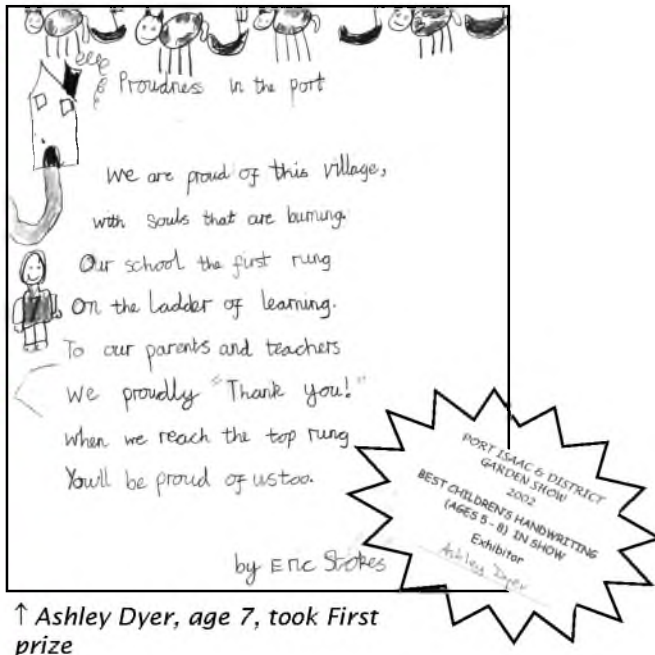 Proudness in the port
We are proud of this village,
with souls that are burning.
Our school the first rung
On the ladder of learning.
To our parents and teachers
We proudly "Thank you!"
When we reach the top rung
You'll be proud of us too.
by Eric Stokes
PORT ISAAC & DISTRICT
GARDEN SHOW
2002
BEST CHILDREN'S HANDWRITING
(AGES 5 - 8) IN SHOW
Exhibitor
Ashley Dyer
↑ Ashley Dyer, age 7, took First
prize